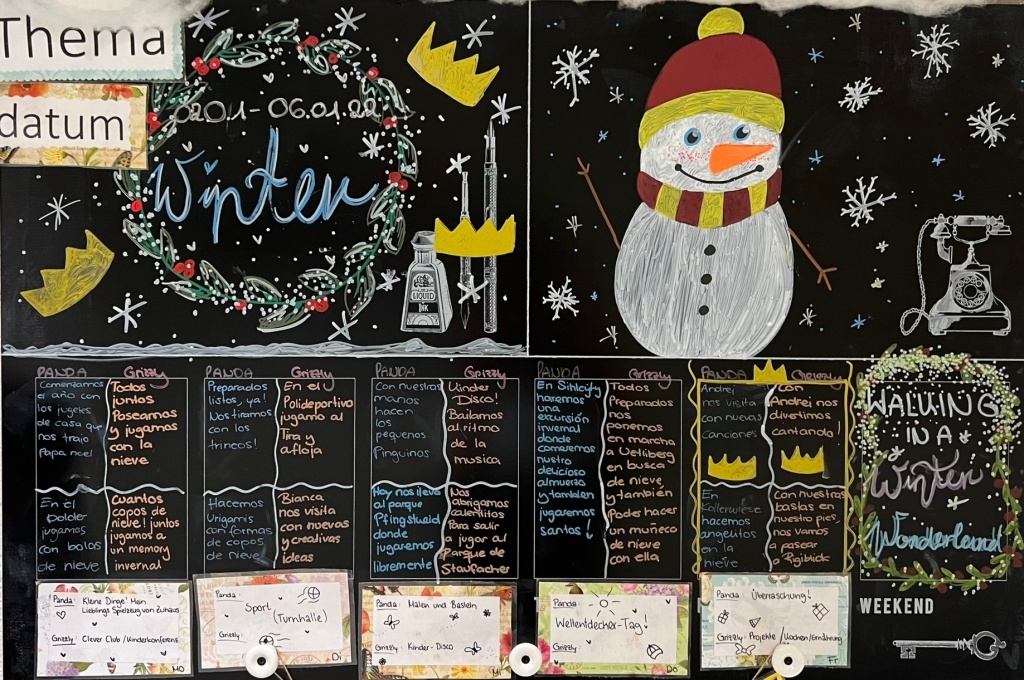 Thema
datum
02.01-06.01.22
Winter
LIQUID
INK
PANDA
Grizzly
Comenzamos
el año con
los jugetes
de casa que
nos trajo
Papa noel
Todos
juntos
Paseamos
y jugamos
con la
nieve
En el
jugamos
con bolas
de nieve
Cuantos
copos de
nieve! juntos
jugamos a
un memory
invernal
PANDA
Grizzly
Preparados
listos, ya!
Nos tiramos
con los
trineos!
En el
Polideportivo
jugamo al
Tira y
afloja
Hacemos
Urigamis
con formas
de copos
de nieve
Bianca
nos visita
con nuevas
y creativas
ideas
PANDA
Grizzly
Con nuestras
manos
hacen
los
pequenos
Pinguinos
Kinder
Disco!
Bailamos
al ritmo
de la
musica
Hoy nos lleva
al parque
Pfingstweid
donde
jugaremos
libremente
Nos
abrigamos
calentitos
Para salir
a jugar al
Parque de
Staufacher
PANDA
Grizzly
En Sihlcity
haremos
una
excursión
invernal
donde
comeremos
nustro
delicioso
almuerzo
y tambien
jugaremos
santos!
Todos
Preparados
nos
ponemos
en marcha
a Uetliberg
en busca
de nieve
y también
Poder hacer
un muñeco
de nieve
con ella
PANDA
Grizzly
Andrej
nos visita
con nuevas
canciones
Con
Andrej nos
divertimos
cantando!
En
hacemos
angelitos
en la
nieve
Con nuestras
bastas en
nuestro pies
nos vamos
a pasear
a
WALKING
IN A
Winter
Wonderland
WEEKEND
Panda: Kleine Dinge! Mein
Lieblings Spielzeug von Zuhaus
Grizzly: Clever Club / Kinderkonferenz
Mo
Sport
(Turnhalle)
Di
Panda: Malen und Basteln
Grizzly: Kinder-Disco
Mi
Panda:
Weltentdecker-Tag!
Grizzly:
Do
Panda: Überraschung!
Grizzly: Projekte / Kochen/Ernährung
Fr